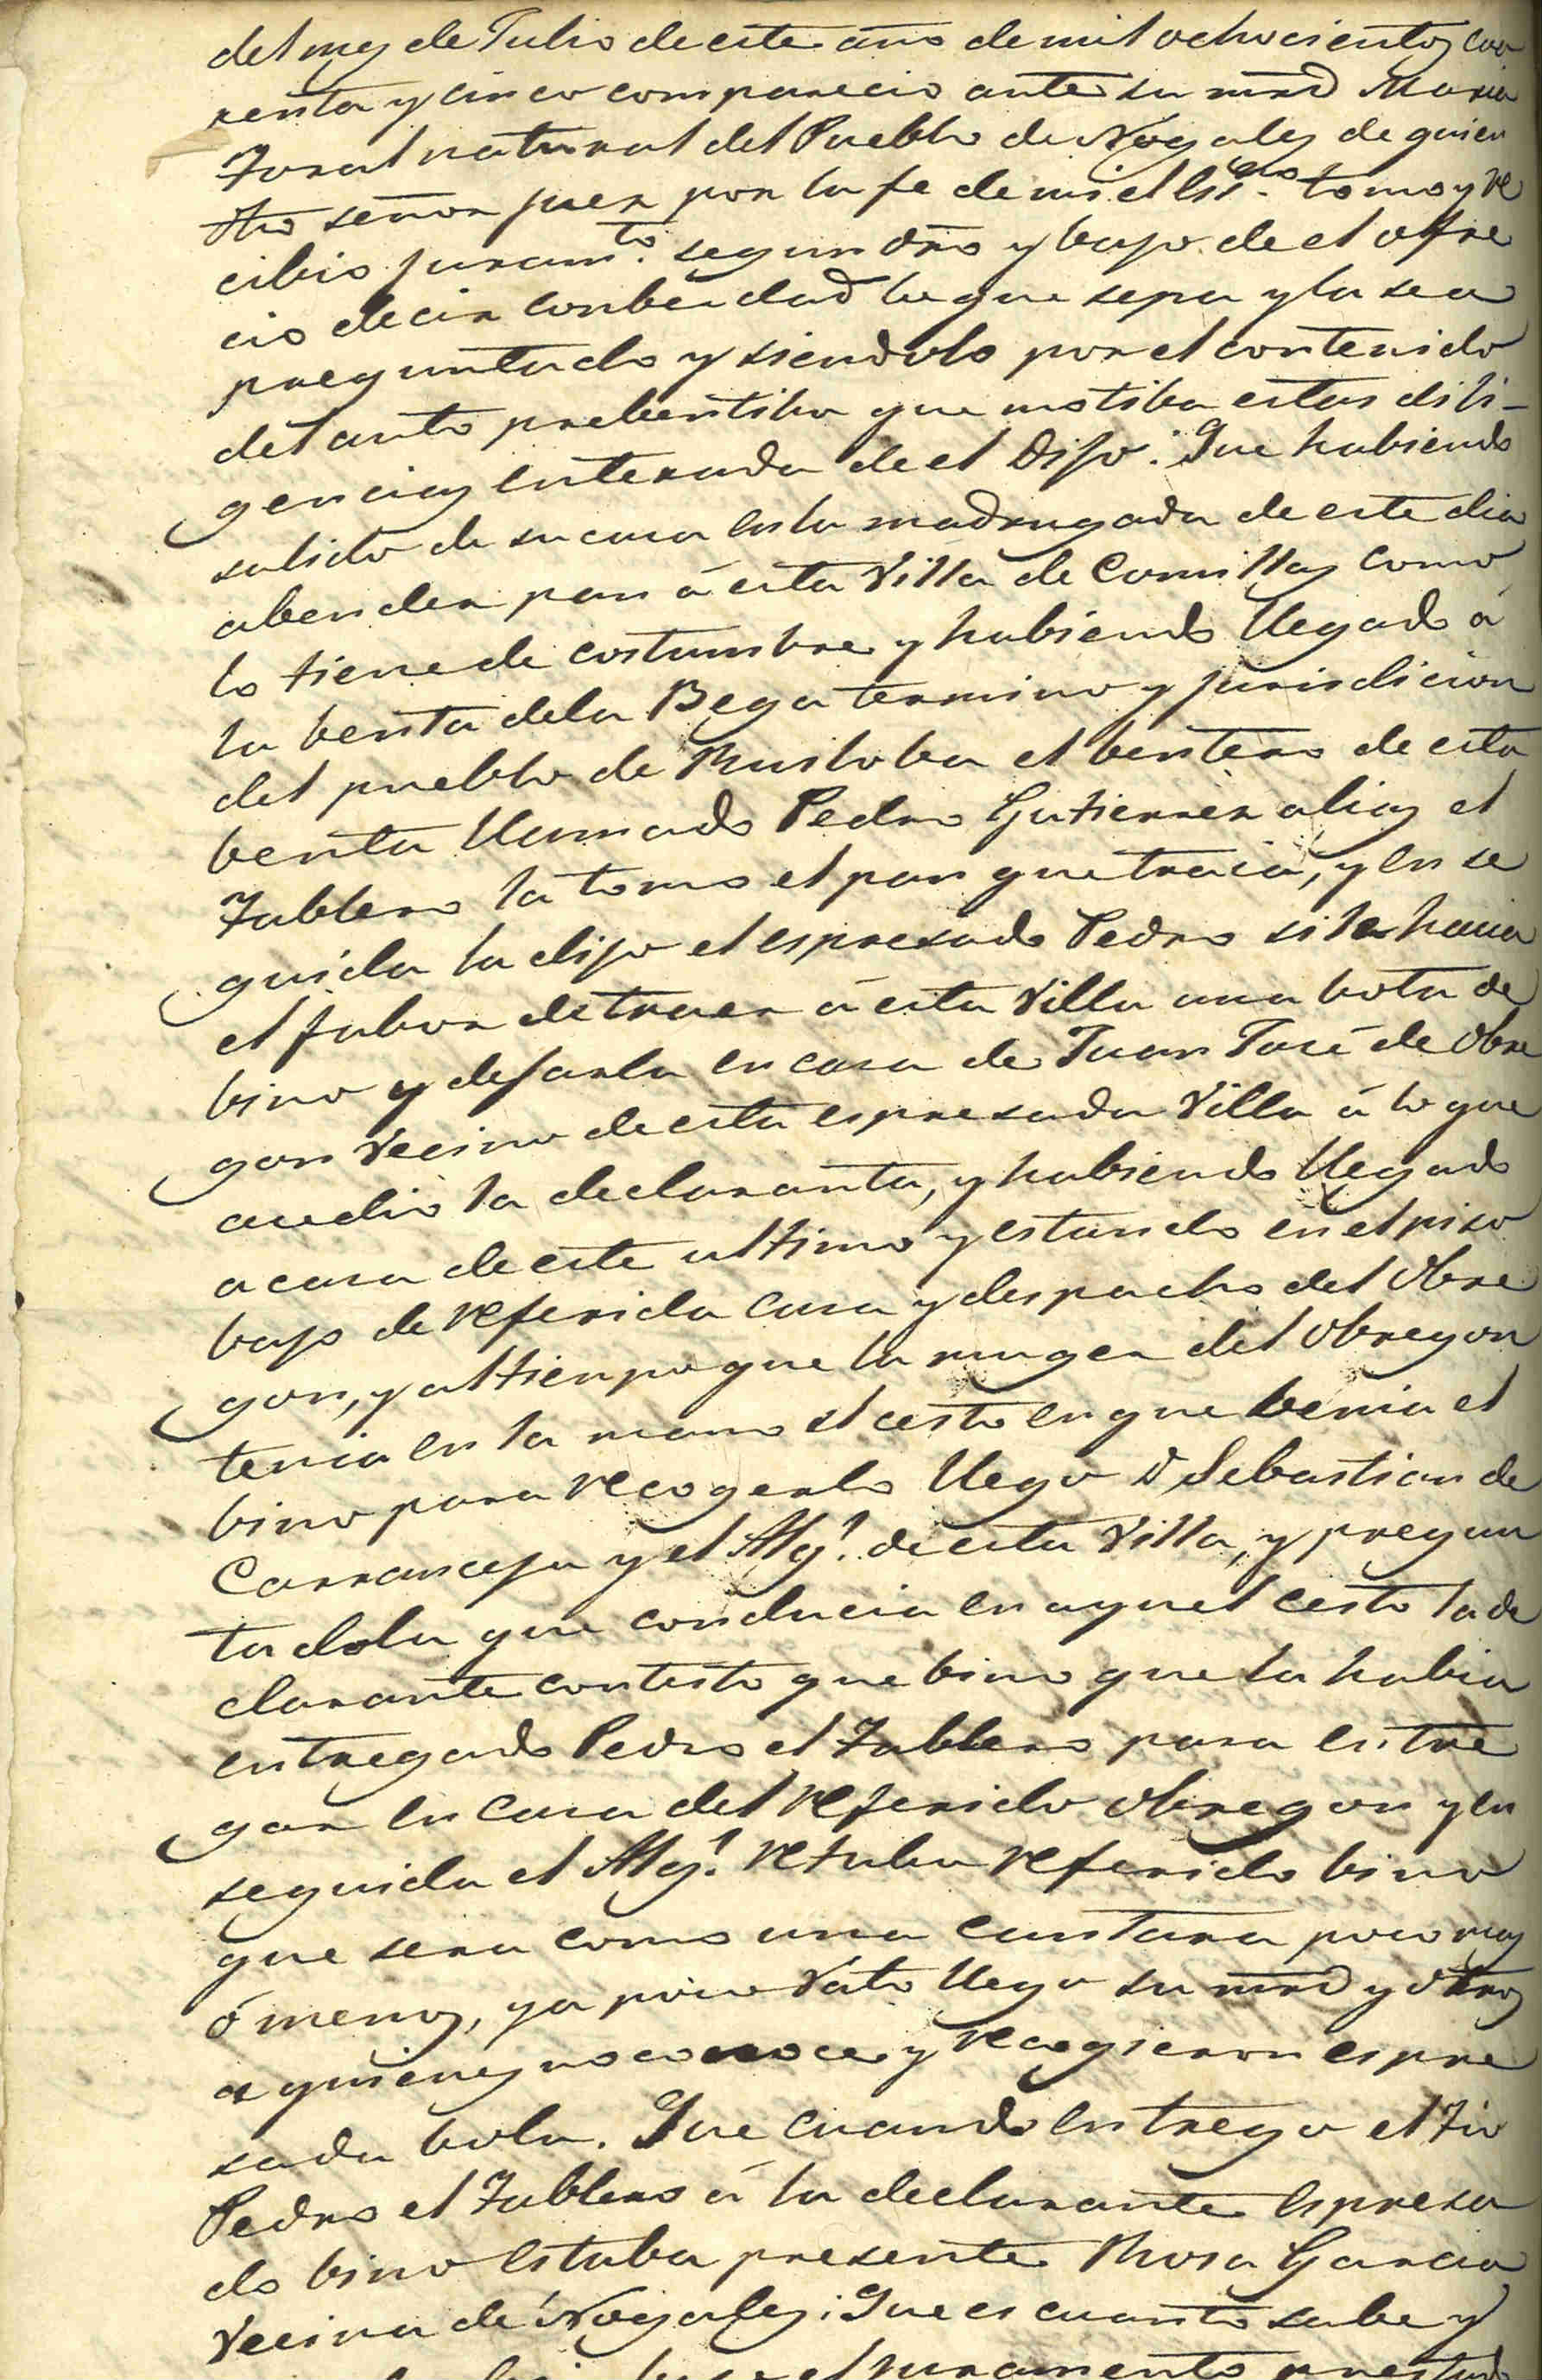 del mes de Julio de este año de mil ochocientos cua
renta y cinco comparecio ante su mrd Maria
Toral natural del Pueblo de Nogales de quien
dho señor juez por la fe de mi el Essno. tomo y re
cibio juramto. segun dro y bajo de el ofre
cio decir con berdad lo que sepa y la sea
preguntado y siendolo por el contenido
del auto prebentibo que motiba estas dili-
gencias enterada de el Dijo: Que habiendo
salido de su casa en la madrugada de este dia
a bender pan á esta Villa de Comillas como
lo tiene de costumbre y habiendo llegado á
la benta de la Bega termino y jurisdicion
del pueblo de Ruiloba el bentero de esta
benta llamado Pedro Gutierrez alias el
Tablero la tomo el pan que traia, y en se
guida la dijo el espresado Pedro si le hacia
el fabor de traer á esta Villa una bota de
bino y dejarla en casa de Juan José de Obre
gon Vecino de esta espresada Villa á lo que
acedio la declaranta, y habiendo llegado
a casa de este ultimo y estando en el piso
bajo de referida casa y despacho del Obre
gon, y al tienpo que la muger del Obregon
tenia en la mano el cesto en que benia el
bino para recogerlo llego D Sebastian de
Carranceja y el Algl. de esta Villa, y pregun
tadola que conducia en aquel cesto la de
clarante contesto que bino que la habia
entregado Pedro el Tablero para entre
gar en casa del referido Obregon y en
seguida el Algl. retubo referido bino
que sera como una cantara poco mas
ó menos, y a poco rato llego su mrd y otros
a quienes no conoce y recogieron espre
sada bota. Que cuando entrego el Tio
Pedro el Tablero á la declarante espresa
do bino estaba presente Rosa Garcia
Vecina de Nogales; Que es cuanto sabe y
el juramento prestado